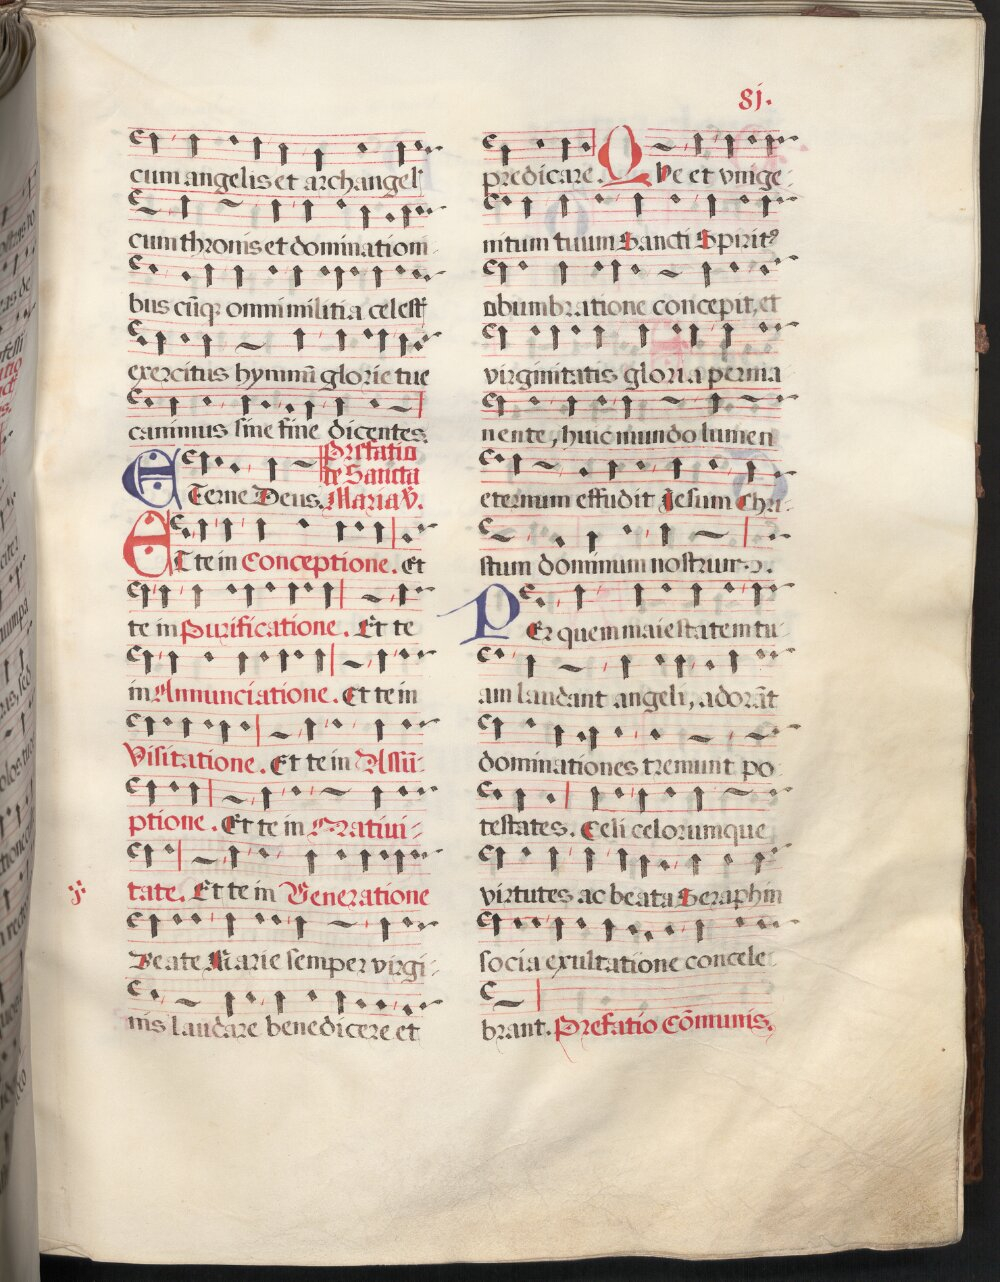 81.
cum angelis et archangel
cum thronis et dominationi
bus cũq; omni militia celest
exercitus hymnũ glorie tue
canimus sine fine dicentes.
Prefatio
de Sancta
Eterne Deus. Maria V.
Et te in Conceptione. Et
te in Purificatione. Et te
in Annunciatione. Et te in
Visitatione. Et te in Assũ-
ptione. Et te in Nativi-
tate. Et te in Veneratione
Beate Marie semper virgi-
nis laudare benedicere et
predicare. Que et unige-
nitum tuum Sancti Spiritꝰ
obumbratione concepit, et
virginitatis gloria perma
nente, huic mundo lumen
eternum effudit Jesum Chri-
stum dominum nostrum.
Per quem maiestatem tu-
am laudant angeli, adorãt
dominationes tremunt po
testates. Celi celorumque
virtutes ac beata Seraphin
socia exultatione concele-
brant. Prefatio cõmunis.